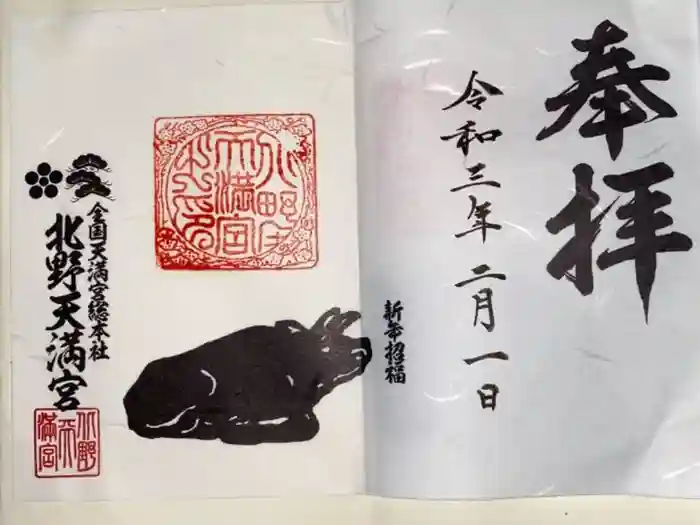 奉拝
令和三年 二月一日
新年招福
北野天満宮之印
全国天満宮総本社
北野天満宮
北野天満宮